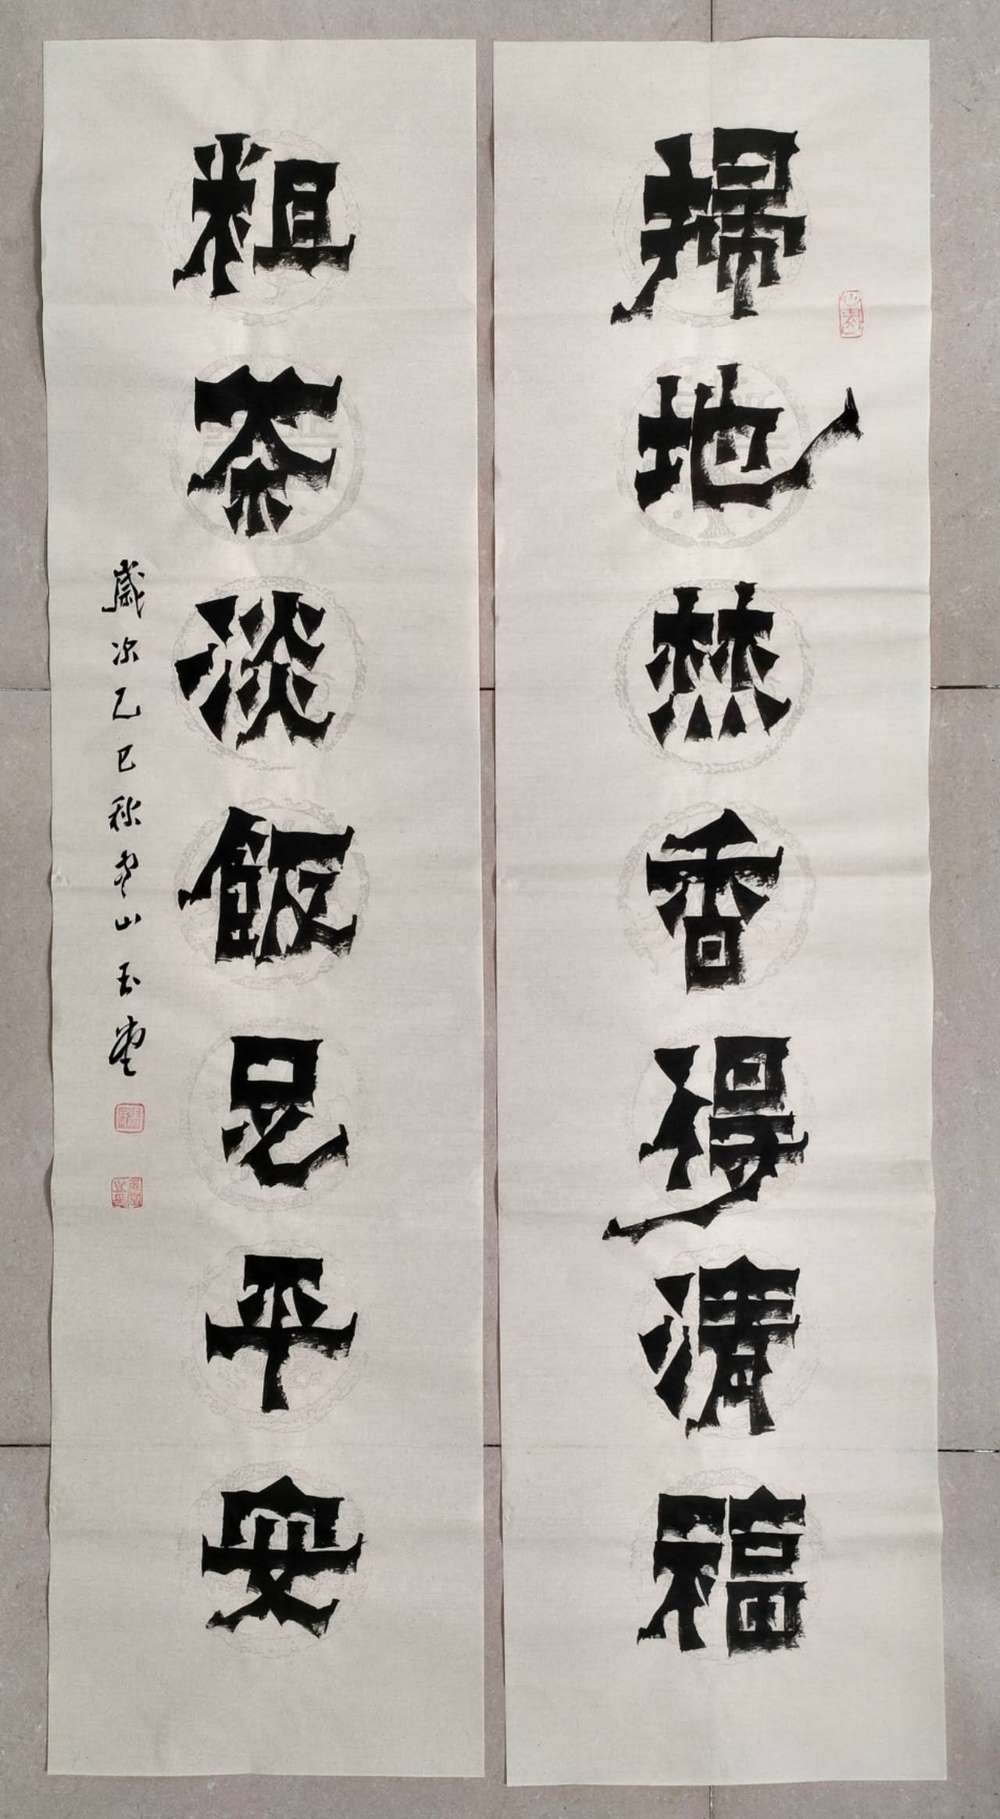 掃地焚香得清福
粗茶淡飯足平安
歲次乙巳秋老山玉堂